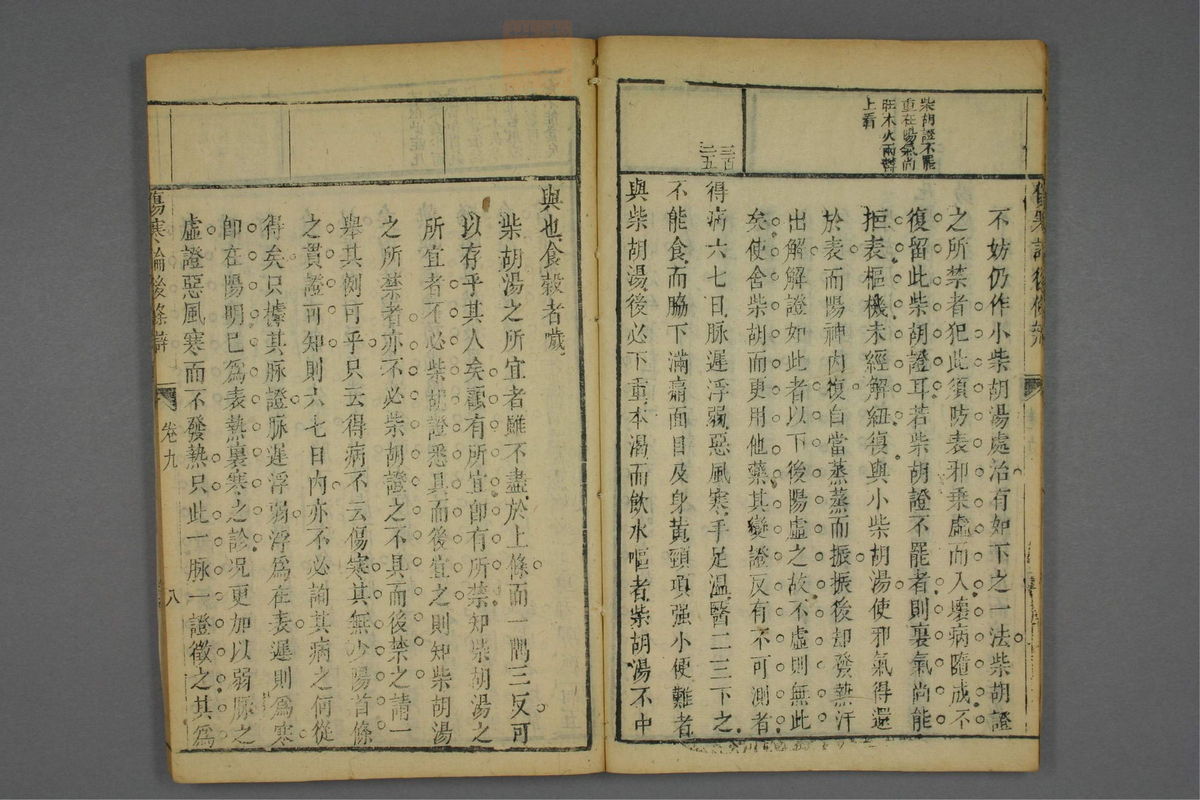 傷寒論後條辨
柴胡證不罷
重在陽氣尚
旺木火兩鬱
上看
二百
二五
不妨仍作小柴胡湯處治有如下之一法柴胡證
之所禁者犯此須防表邪乘虛而入壞病隨成不
復留此柴胡證耳若柴胡證不罷者則裏氣尚能
拒表樞機未經解紐復與小柴胡湯使邪氣得還
於表而陽神內復自當蒸蒸而振振後却發熱汗
出解解證如此者以下後陽虛之故不虛則無此
矣使舍柴胡而更用他藥其變證反有不可測者
得病六七日脉遲浮弱惡風寒手足溫醫二三下之
不能食而脇下滿痛面目及身黃頸項强小便難者
與柴胡湯後必下重本渴而飲水嘔者柴胡湯不中
與也食穀者噦
柴胡湯之所宜者雖不盡於上條而一隅三反可
以存乎其人矣顧有所宜卽有所禁知柴胡湯之
所宜者不必柴胡證悉具而後宜之則知柴胡湯
之所禁者亦不必柴胡證之不具而後禁之請一
舉其例可乎只云得病不云傷寒其無少陽首條
之貫證可知則六七日內亦不必論其病之何從
得矣只據其脉證脉遲浮弱浮爲在表遲則爲寒
卽在陽明已爲表熱裏寒之診况更加以弱脉之
虛證惡風寒而不發熱只此一脉一證徵之其爲
傷寒論後條辨
卷九
八